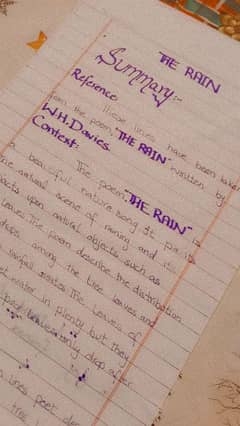 THE RAIN
Summary:-
Reference
These lines have been taken
from the poem, "THE RAIN" written by
W.H. Davies.
Context:
The poem, "THE RAIN" is
A beautiful nature song. It paints
the natural scene of raining and its
upon natural objects such as
leaves. The poem describe the distribution
among the tree leaves and
rainfall makes The leaves of
water in plenty but they
only drop after
lines poet